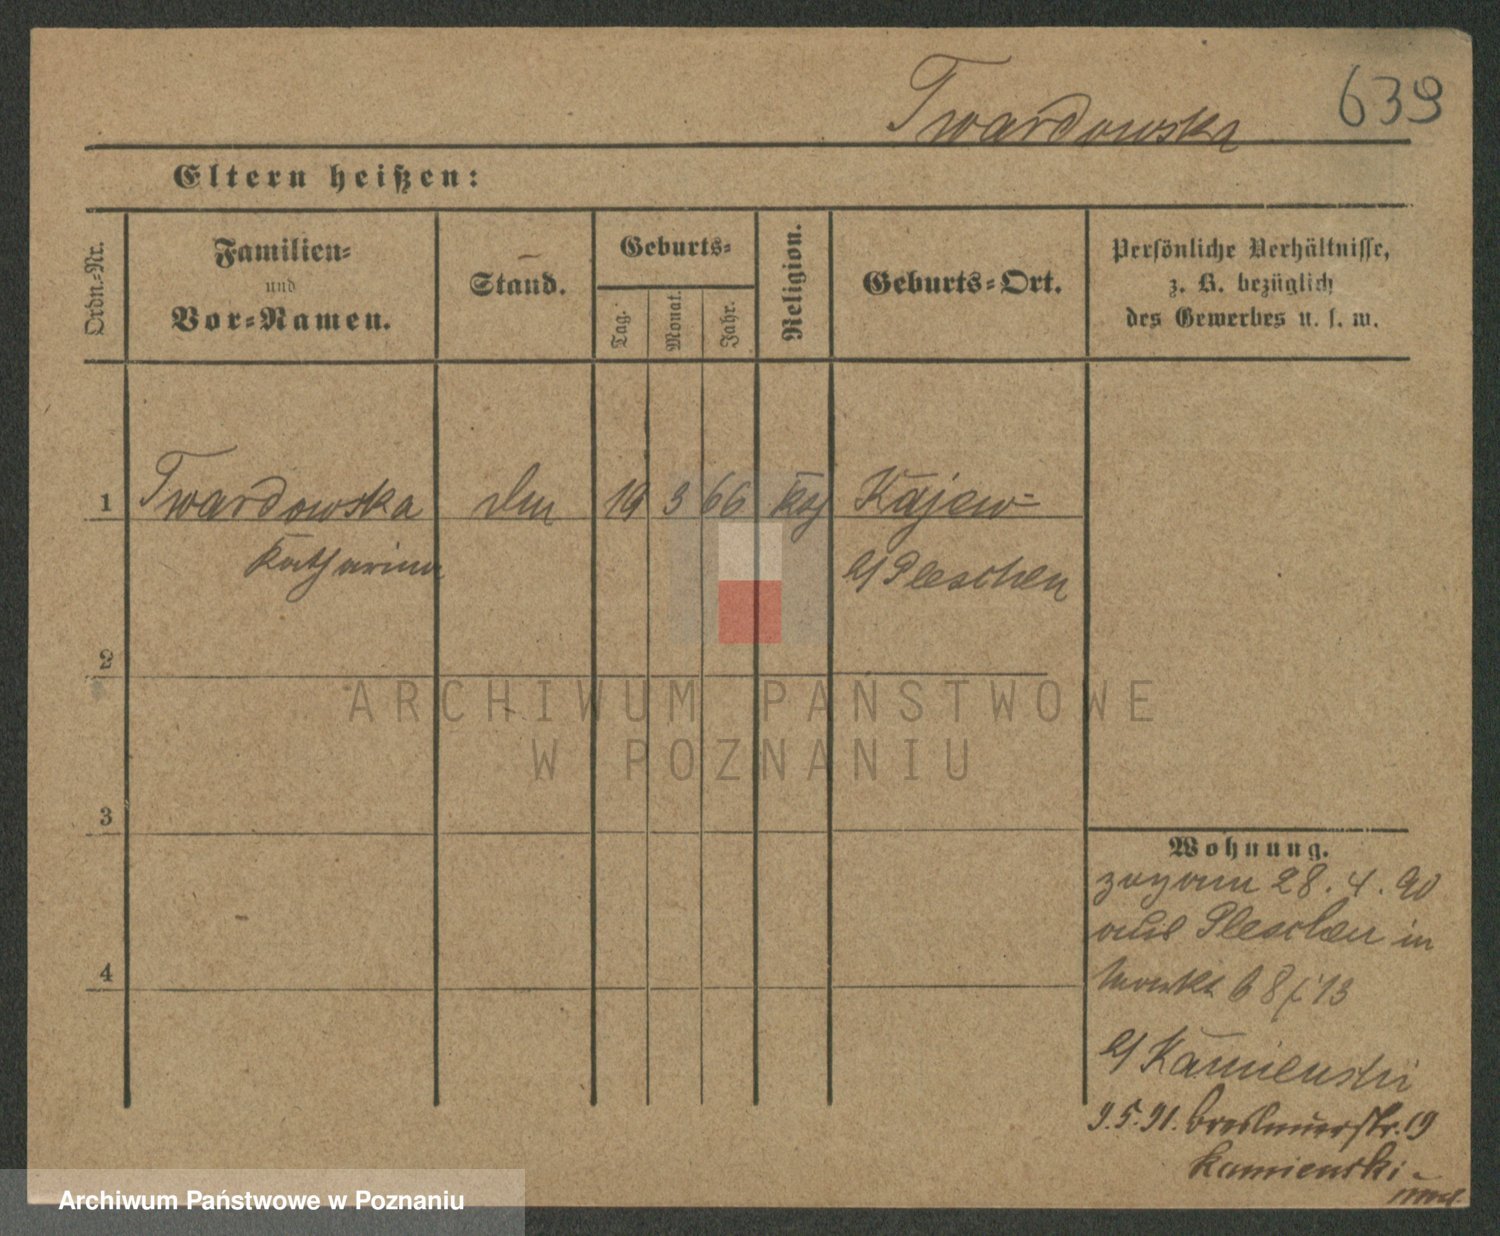 Twardowska 639
Eltern heißen:
Ordn.-Nr.
Familien-
und
Vor-Namen.
Stand.
Geburts-
Tag.
Monat.
Jahr.
Religion.
Geburts-Ort.
Persönliche Verhältnisse,
z. B. bezüglich
des Gewerbes u. s. w.
1 Twardowska 19 3 66 Kajew-
Katharina b/ Pleschen
2
3
4
Wohnung.
28. 4. 90
aus Pleschen in
Markt 68/
b/ Kamienski
9.5.91. Breslauerstr. 19
Kamienski
ARCHIWUM PAŃSTWOWE
W POZNANIU
Archiwum Państwowe w Poznaniu